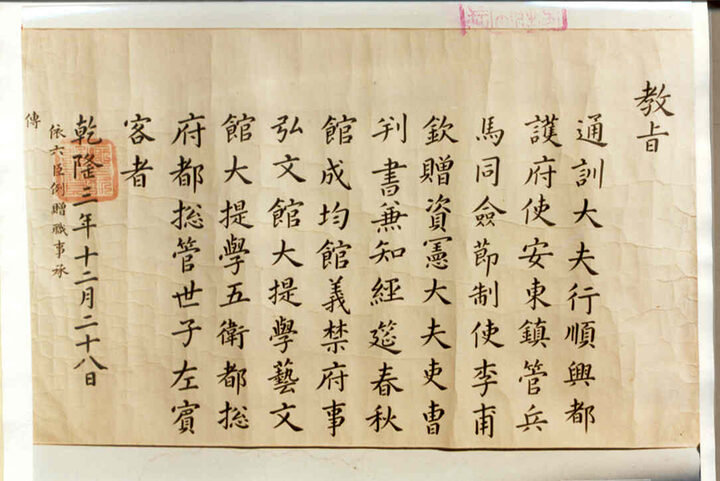 教旨
通訓大夫行順興都
護府使安東鎮管兵
馬同僉節制使李甫
欽贈資憲大夫吏曹
判書兼知經筵春秋
館成均館義禁府事
弘文館大提學藝文
館大提學五衛都摠
府都摠管世子左賓
客者
乾隆三年十二月二十八日
依六臣例贈職事承
傳